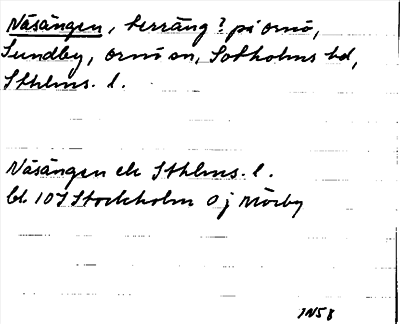 Näsängen, terräng? på Ornö,
Sundby, Ornö sn, Sotholms hd,
Sthlms. l.
Näsängen ek Sthlms. l.
bl. 10J Stockholm 0 j Mörby
IN58